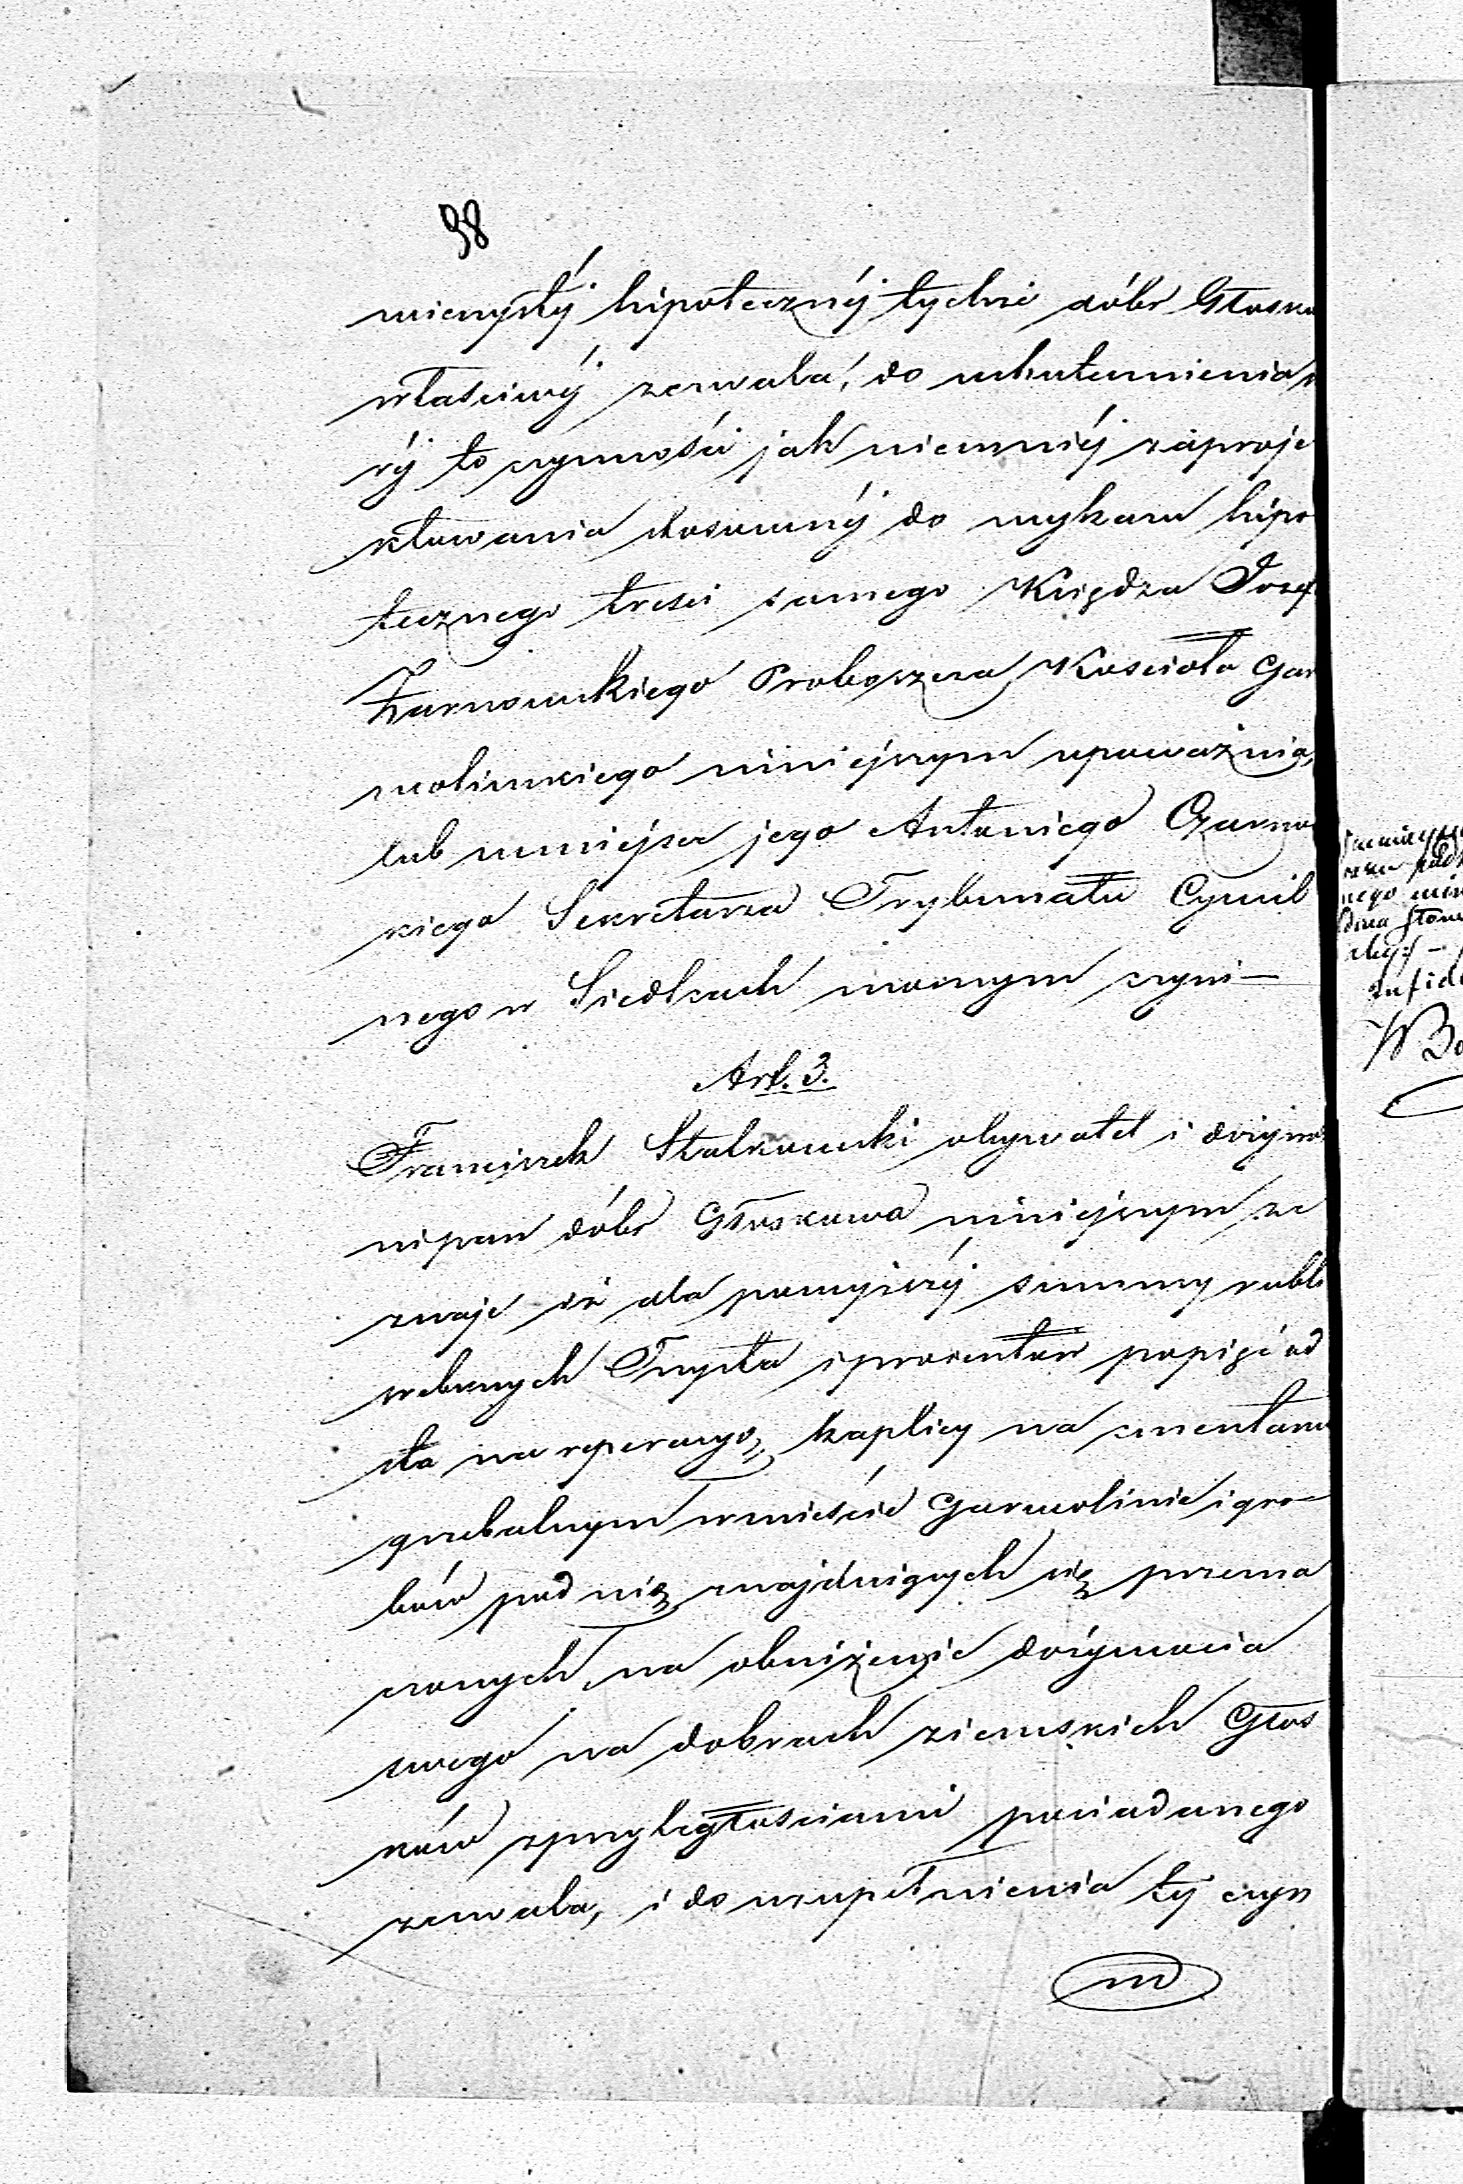 98
wieczystéj hipotecznéj tychże dóbr Głosko
właściwéj zezwala, do uskutecznienia
réj to czynności jak niemniéj zaproje
ktowania stosownéj do wykazu hipo
tecznego treści samego Księdza Józef
Żarnowskiego Proboszcza Kościoła Gar
wolinskiego niniejszym upoważnia,
lub w miejsce jego Antoniego Czarno
kiego Sekretarza Trybunału Cywil
nego w Siedlcach mocnym czyni —
Art. 3.
Franciszek Stalkowski obywatel i dożywo
nipan dóbr Głoskowa niniejszym ze
znaje iż dla powyższéj summy rubli
srebrnych Trzysta i procentów po pięć od
sta na reperacyę kaplicy na cmentarzu
grzebalnym w mieście Garwolinie i gro-
bów pod nią znajdujących się przezna
czonych, na obniżenie dożywocia
swego na dobrach ziemskich Głos
ków z przyległościami posiadanego
zezwala, i do uzupełnienia téj czyn
nego